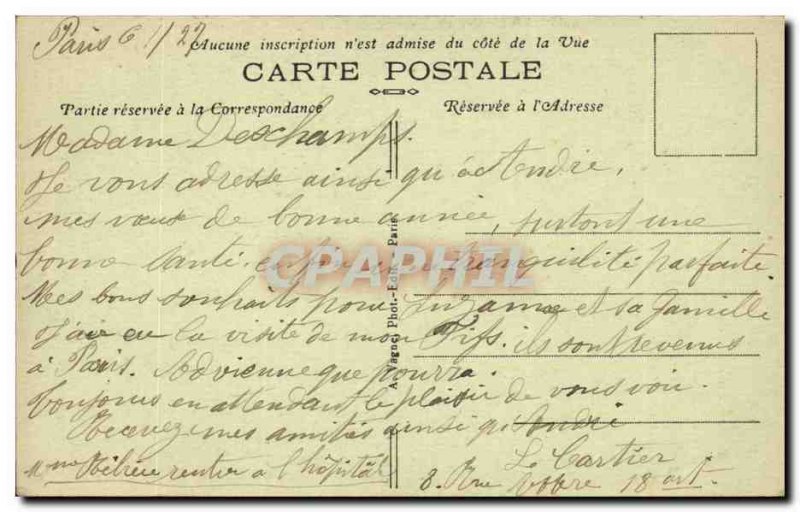 Paris 6/1/27
Aucune inscription n'est admise du côté de la Vue
CARTE POSTALE
Partie réservée à la Correspondance
Réservée à l'Adresse
Madame Deschamps.
Je vous adresse ainsi qu'à André,
mes vœux de bonne année, surtout une
bonne santé, tranquilité parfaite.
Mes bons souhaits pour Suzanne et sa famille
J'ai eu la visite de mon Fils. ils sont revenus
à Paris. Advienne que pourra.
Toujours en attendant le plaisir de vous voir.
Recevez mes amitiés ainsi qu'André
L. Cartier
Mme rentre à l'hôpital
8. Rue 18 art.
Phot.-Edit. Paris.
CPAPHIL